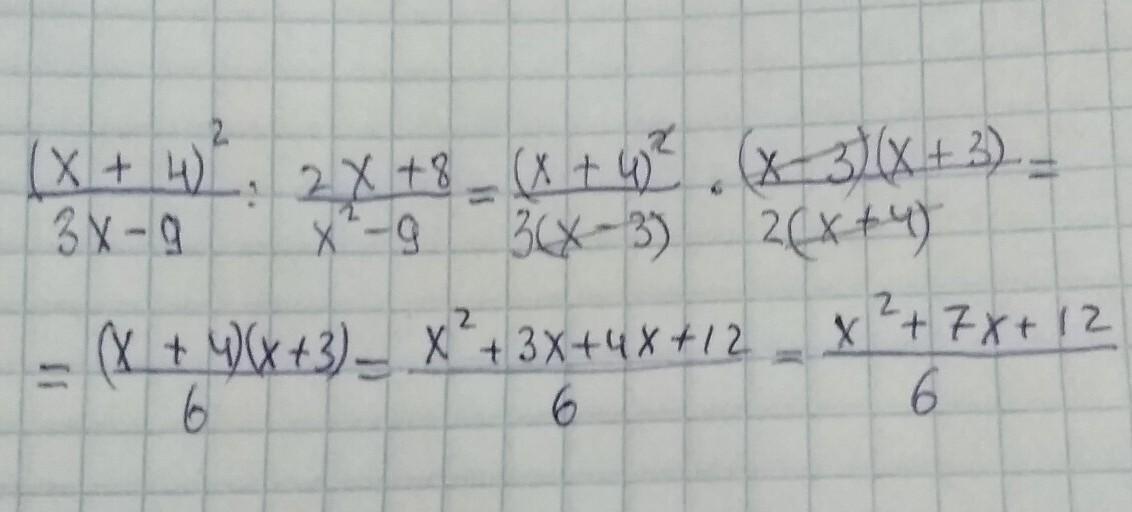 (x + 4)² / 3x - 9 : 2x + 8 / x² - 9 = (x + 4)² / 3(x - 3) · (x - 3)(x + 3) / 2(x + 4) =
= (x + 4)(x + 3) / 6 = x² + 3x + 4x + 12 / 6 = x² + 7x + 12 / 6